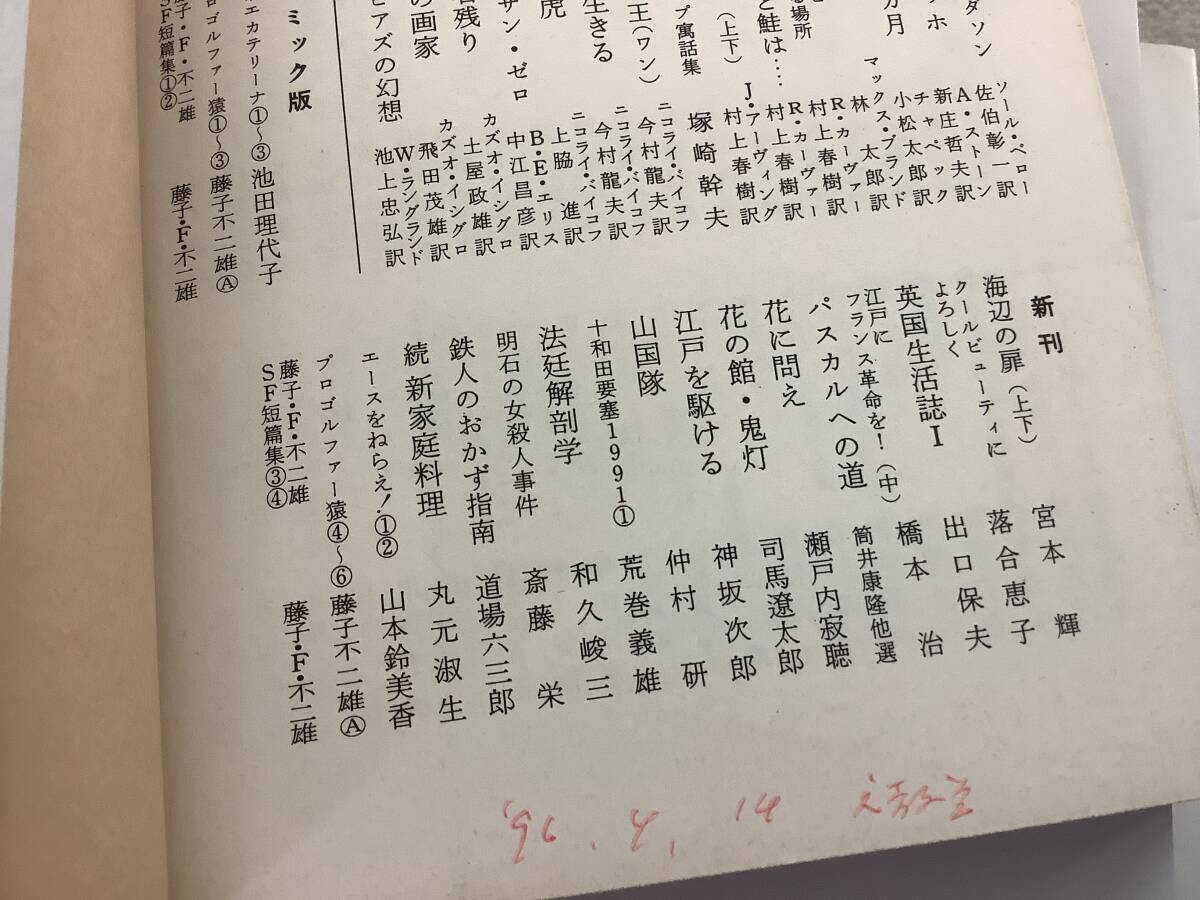 ダソン ソール・ベロー
佐伯彰一訳
A・ストーン
ホ 新庄哲夫訳
チャペック
カ月 小松太郎訳
マックス・ブランド
林 太郎訳
R・カーヴァー
る場所 村上春樹訳
R・カーヴァー
と鮭は‥‥ 村上春樹訳
J・アーヴィング
(上下) 村上春樹訳
プ寓話集 塚崎幹夫
ニコライ・バイコフ
王(ワン) 今村龍夫訳
ニコライ・バイコフ
生きる 今村龍夫訳
ニコライ・バイコフ
虎 上脇 進訳
B・E・エリス
サン・ゼロ 中江昌彦訳
カズオ・イシグロ
名残り 土屋政雄訳
カズオ・イシグロ
の画家 飛田茂雄訳
W・ラングランド
ピアズの幻想 池上忠弘訳
ミック版
エカテリーナ①〜③ 池田理代子
ロゴルファー猿①〜③ 藤子不二雄Ⓐ
藤子・F・不二雄
SF短篇集①② 藤子・F・不二雄
新刊
海辺の扉(上下) 宮本 輝
クールビューティに
よろしく 落合恵子
英国生活誌Ⅰ 出口保夫
江戸に
フランス革命を!(中) 橋本 治
パスカルへの道 筒井康隆他選
花に問え 瀬戸内寂聴
花の館・鬼灯 司馬遼太郎
江戸を駆ける 神坂次郎
山国隊 仲村 研
十和田要塞1991① 荒巻義雄
法廷解剖学 和久峻三
明石の女殺人事件 斎藤 栄
鉄人のおかず指南 道場六三郎
続 新家庭料理 丸元淑生
エースをねらえ!①② 山本鈴美香
プロゴルファー猿④〜⑥ 藤子不二雄Ⓐ
藤子・F・不二雄
SF短篇集③④ 藤子・F・不二雄
'96.4.14 文教堂